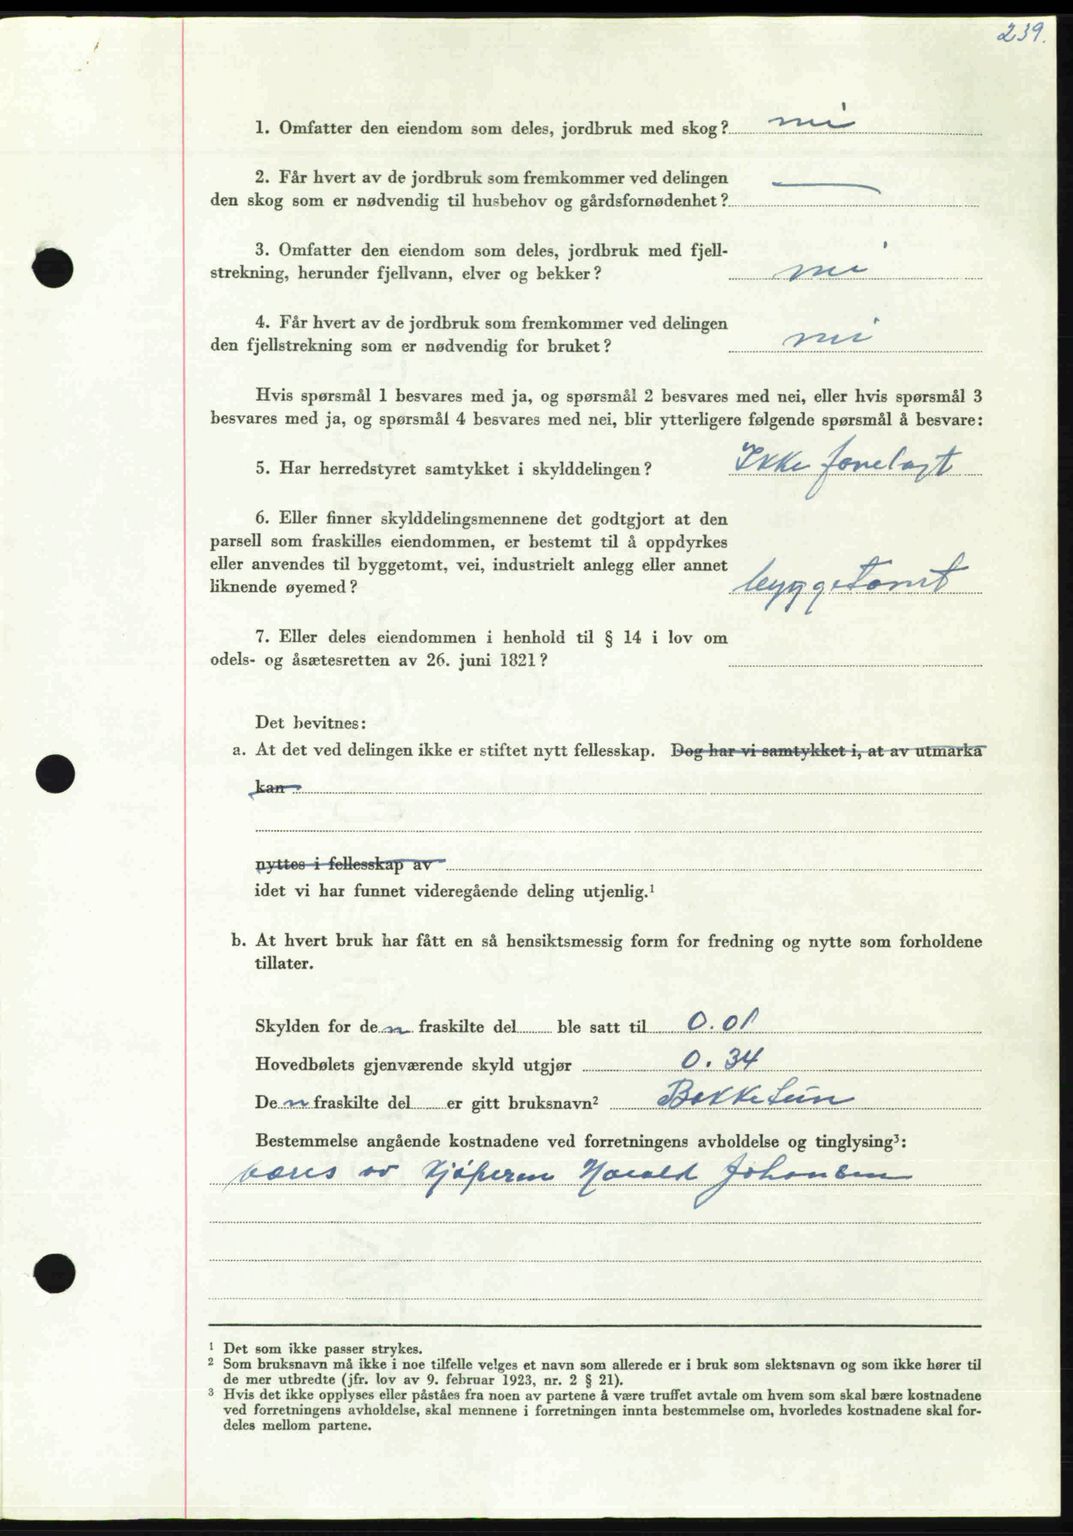 239.
1. Omfatter den eiendom som deles, jordbruk med skog? nei
2. Får hvert av de jordbruk som fremkommer ved delingen
den skog som er nødvendig til husbehov og gårdsfornødenhet? —
3. Omfatter den eiendom som deles, jordbruk med fjell-
strekning, herunder fjellvann, elver og bekker? nei
4. Får hvert av de jordbruk som fremkommer ved delingen
den fjellstrekning som er nødvendig for bruket? nei
Hvis spørsmål 1 besvares med ja, og spørsmål 2 besvares med nei, eller hvis spørsmål 3
besvares med ja, og spørsmål 4 besvares med nei, blir ytterligere følgende spørsmål å besvare:
5. Har herredstyret samtykket i skylddelingen? Ikke forelagt
6. Eller finner skylddelingsmennene det godtgjort at den
parsell som fraskilles eiendommen, er bestemt til å oppdyrkes
eller anvendes til byggetomt, vei, industrielt anlegg eller annet
liknende øyemed? byggetomt
7. Eller deles eiendommen i henhold til § 14 i lov om
odels- og åsætesretten av 26. juni 1821?
Det bevitnes:
a. At det ved delingen ikke er stiftet nytt fellesskap. Dog har vi samtykket i, at av utmarka
kan
nyttes i fellesskap av
idet vi har funnet videregående deling utjenlig.¹
b. At hvert bruk har fått en så hensiktsmessig form for fredning og nytte som forholdene
tillater.
Skylden for den fraskilte del ble satt til 0.01
Hovedbølets gjenværende skyld utgjør 0.34
Den fraskilte del er gitt bruksnavn² Bekketun
Bestemmelse angående kostnadene ved forretningens avholdelse og tinglysing³:
bæres av kjøperen Harald Johansen
¹ Det som ikke passer strykes.
² Som bruksnavn må ikke i noe tilfelle velges et navn som allerede er i bruk som slektsnavn og som ikke hører til
de mer utbredte (jfr. lov av 9. februar 1923, nr. 2 § 21).
³ Hvis det ikke opplyses eller påståes fra noen av partene å være truffet avtale om hvem som skal bære kostnadene
ved forretningens avholdelse, skal mennene i forretningen innta bestemmelse om, hvorledes kostnadene skal for-
deles mellom partene.